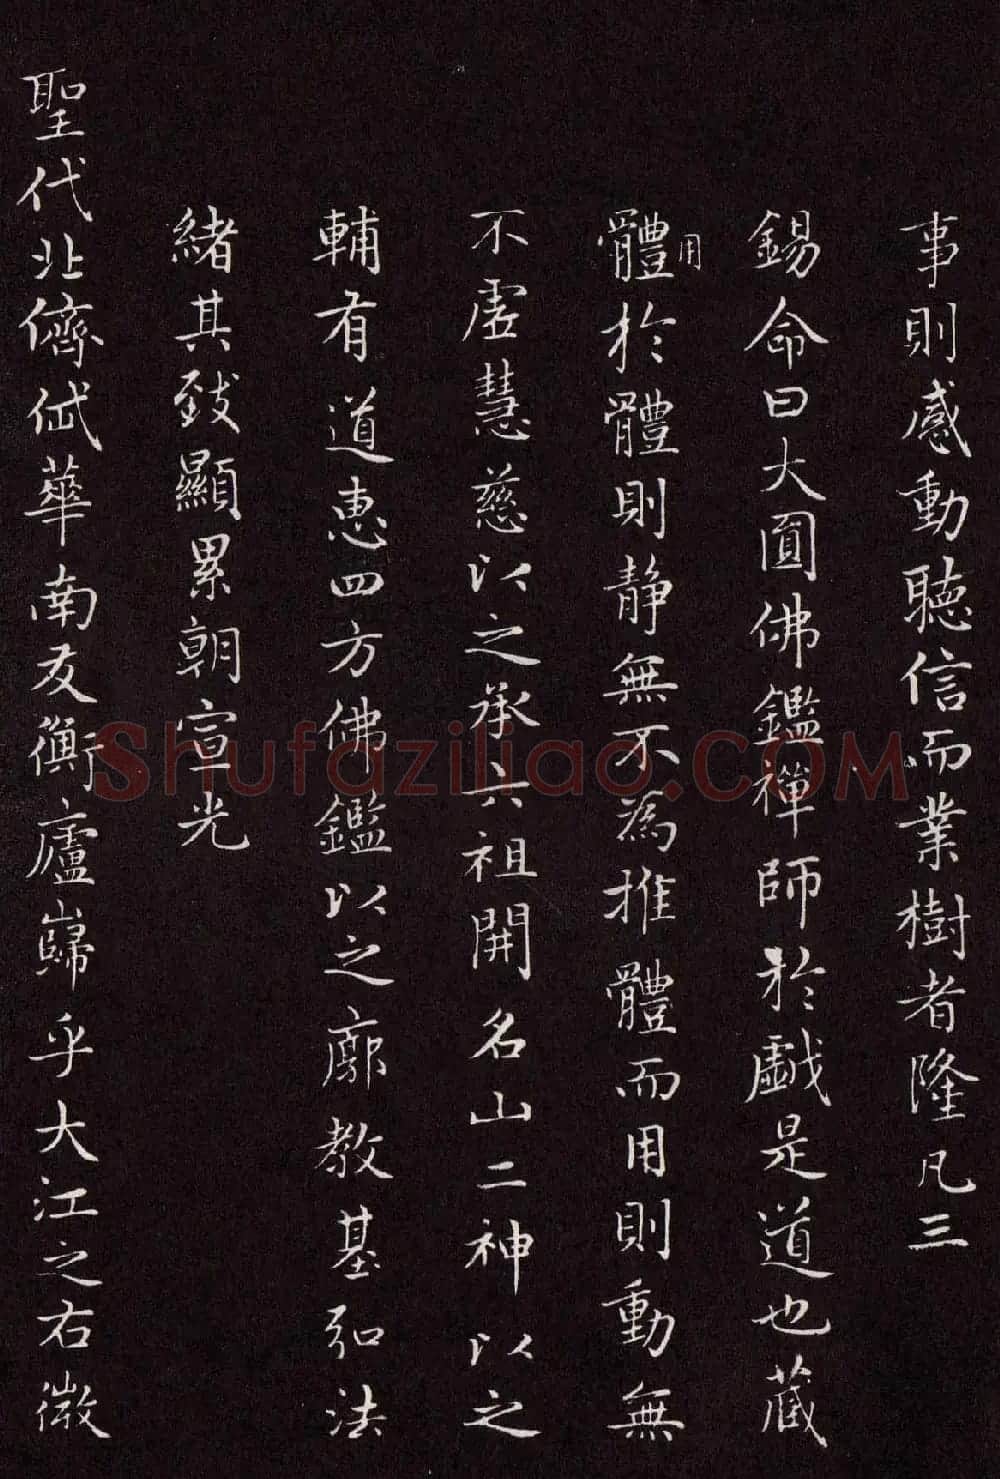 事則感動聽信而業樹者隆凡三
錫命曰大圓佛鑑禪師於戲是道也蔵
用
體於體則静無不為推體而用則動無
不虛慧慈以之承六祖開名山二神以之
輔有道惠四方佛鑑以之廓教基弘法
緒其致顯累朝宣光
聖代北儕岱華南友衡廬巋乎大江之右徵
Shufaziliao.COM